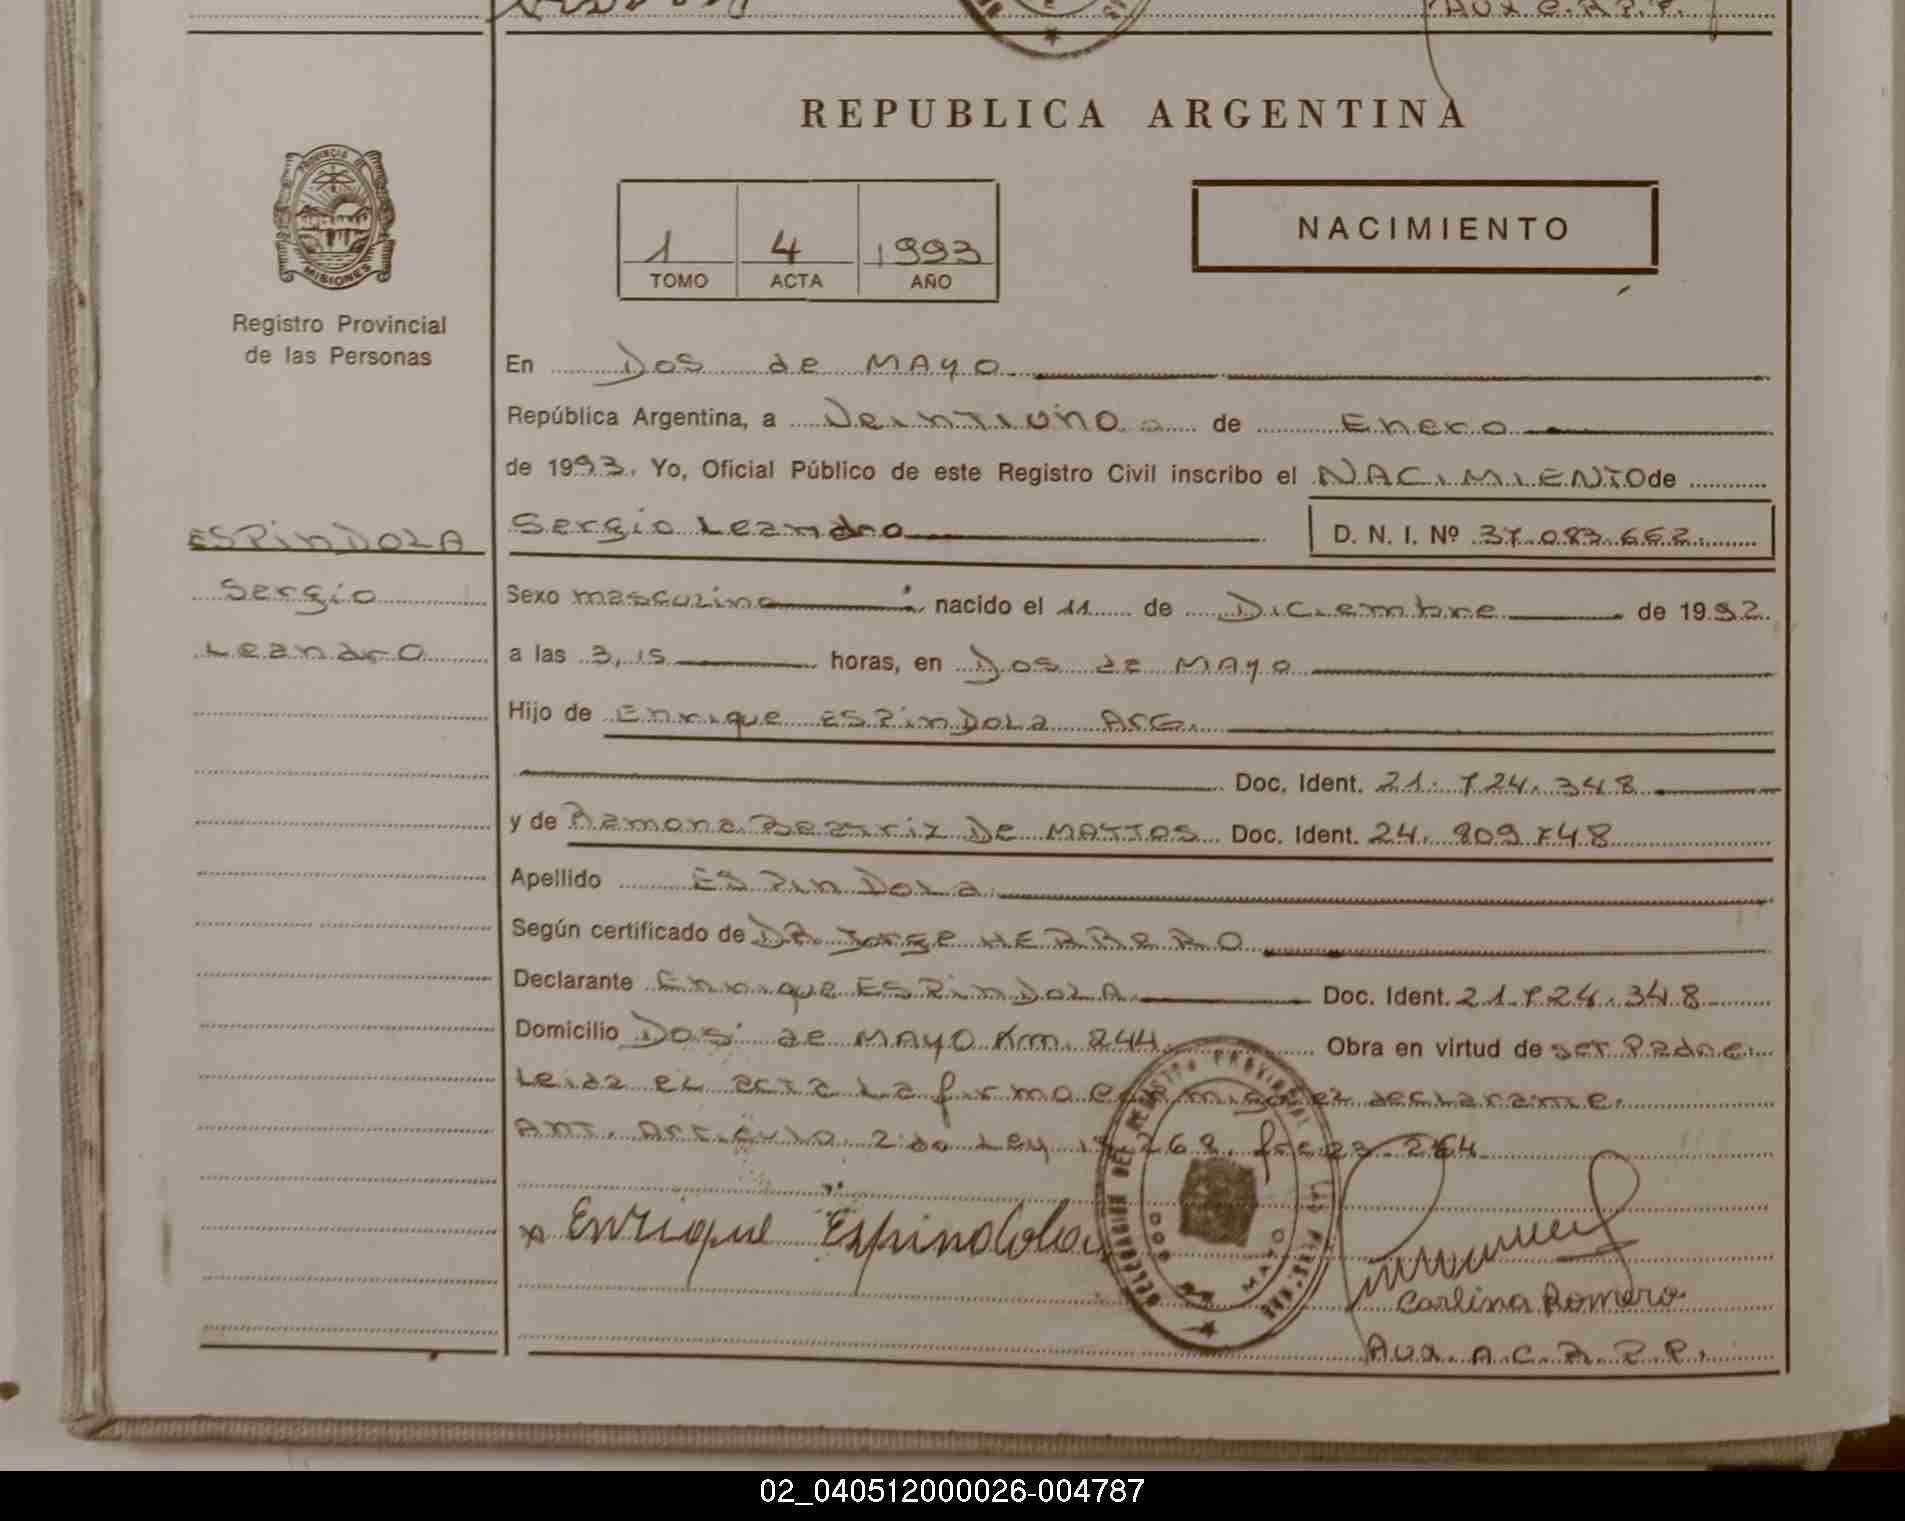 Aux C.A.P.P.
REPUBLICA ARGENTINA
PROVINCIA DE
MISIONES
Registro Provincial
de las Personas
1 4 1993
TOMO ACTA AÑO
NACIMIENTO
En Dos de MAYO
República Argentina, a Veintiuno de Enero
de 1993. Yo, Oficial Público de este Registro Civil inscribo el NACIMIENTO de
Sergio Leandro D. N. I. Nº 37.083.662.
ESPINDOLA
Sergio
Leandro
Sexo masculino nacido el 11 de Diciembre de 1992.
a las 3,15 horas, en Dos de MAYO
Hijo de Enrique ESPINDOLA ARG.
Doc. Ident. 21.724.348
y de Ramona Beatriz DE MATTOS Doc. Ident. 24.809748
Apellido ESPINDOLA
Según certificado de DR. Jorge HERRERO
Declarante Enrique ESPINDOLA Doc. Ident. 21.724.348
Domicilio Dos de MAYO Km. 244 Obra en virtud de ser Padre.
Leida el acta la firma conmigo el declarante.
Ant. Articulo 2do Ley 23.264
x Enrique Espindola
DELEGACION DEL REGISTRO PROVINCIAL DE LAS PERSONAS
DOS DE MAYO
Carlina Romero
Aux. A.C.R.P.P.
02_040512000026-004787